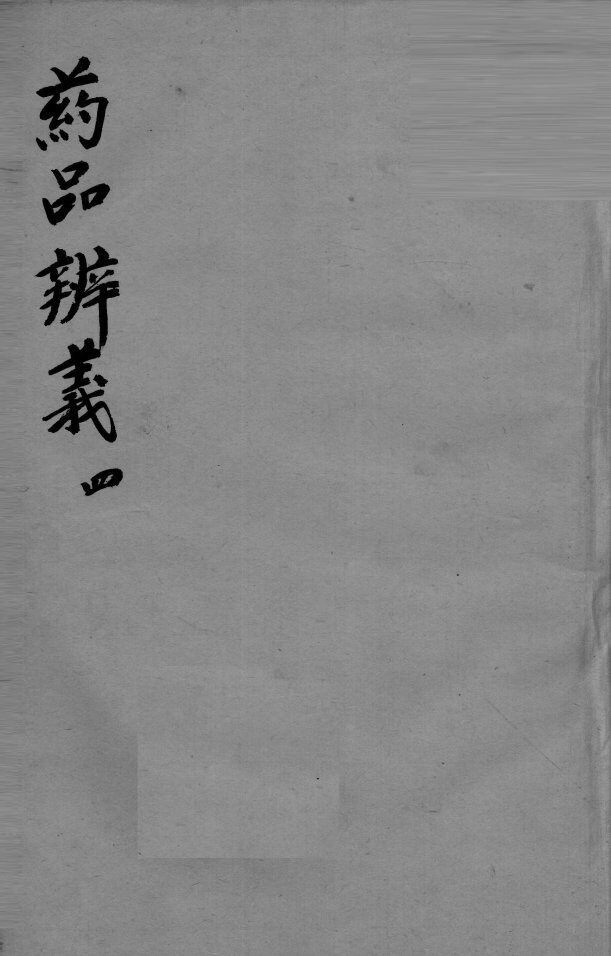 葯品辨義四